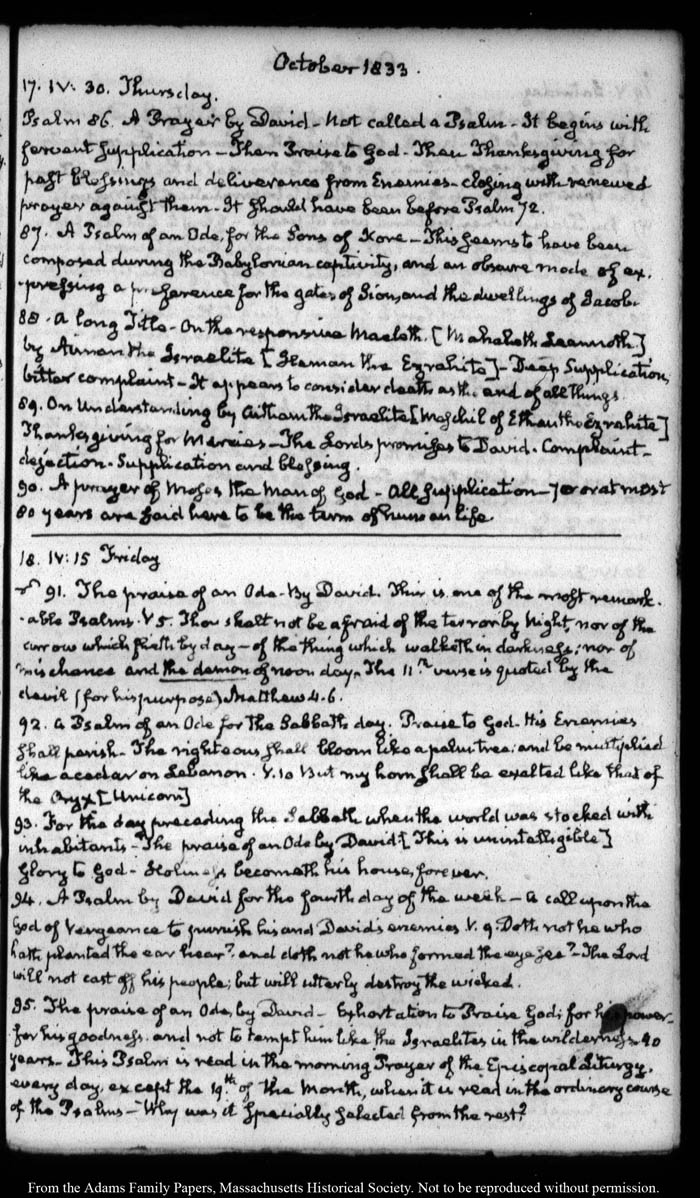 October 1833.
17. IV: 30. Thursday.
Psalm 86. A Prayer by David - Not called a Psalm - It begins with
fervent supplication - Then Praise to God - Then Thanksgiving for
past blessings and deliverance from Enemies - closing with renewed
prayer against them - It should have been before Psalm 72.
87. A Psalm of an Ode, for the Sons of Kore - This seems to have been
composed during the Babylonian captivity, and an obscure mode of ex-
-pressing a preference for the gates of Sion, and the dwellings of Jacob.
88. A long Title - On the responsive Maeleth. [Mahalath Leannoth.]
by Aiman the Israelite [Heman the Ezrahite] - Deep Supplication,
bitter complaint - It appears to consider death as the end of all things
89. On Understanding by Aitham the Israelite [Maschil of Ethan the Ezrahite]
Thanksgiving for Mercies - The Lords promises to David. Complaint -
dejection - Supplication and blessing.
90. A prayer of Moses the Man of God - All supplication - 70 or at most
80 years are said here to be the term of human life.
18. IV: 15 Friday
91. The praise of an Ode - By David. This is one of the most remark-
-able Psalms. V 5. Thou shalt not be afraid of the terror by Night, nor of the
arrow which flieth by day - of the thing which walketh in darkness; nor of
mischance and the demon of noon day. The 11th verse is quoted by the
devil (for his purpose) Matthew 4.6.
92. A Psalm of an Ode for the Sabbath day. Praise to God. His Enemies
shall perish - The righteous shall bloom like a palm tree: and be multiplied
like a cedar on Lebanon. V. 10 But my horn shall be exalted like that of
the Oryx [Unicorn]
93. For the day preceding the Sabbath when the world was stocked with
inhabitants - The praise of an Ode by David [This is unintelligible]
Glory to God - Holiness becometh his house, forever.
94. A Psalm by David for the fourth day of the week - A call upon the
God of Vengeance to punish his and David's enemies V. 9. Doth not he who
hath planted the ear hear? and doth not he who formed the eye see? - The Lord
will not cast off his people; but will utterly destroy the wicked.
95. The praise of an Ode, by David - Exhortation to Praise God; for his power -
for his goodness. and not to tempt him like the Israelites in the wilderness 40
years - This Psalm is read in the morning Prayer of the Episcopal Liturgy,
every day, except the 19th of the Month, when it is read in the ordinary course
of the Psalms - Why was it specially selected from the rest?
From the Adams Family Papers, Massachusetts Historical Society. Not to be reproduced without permission.